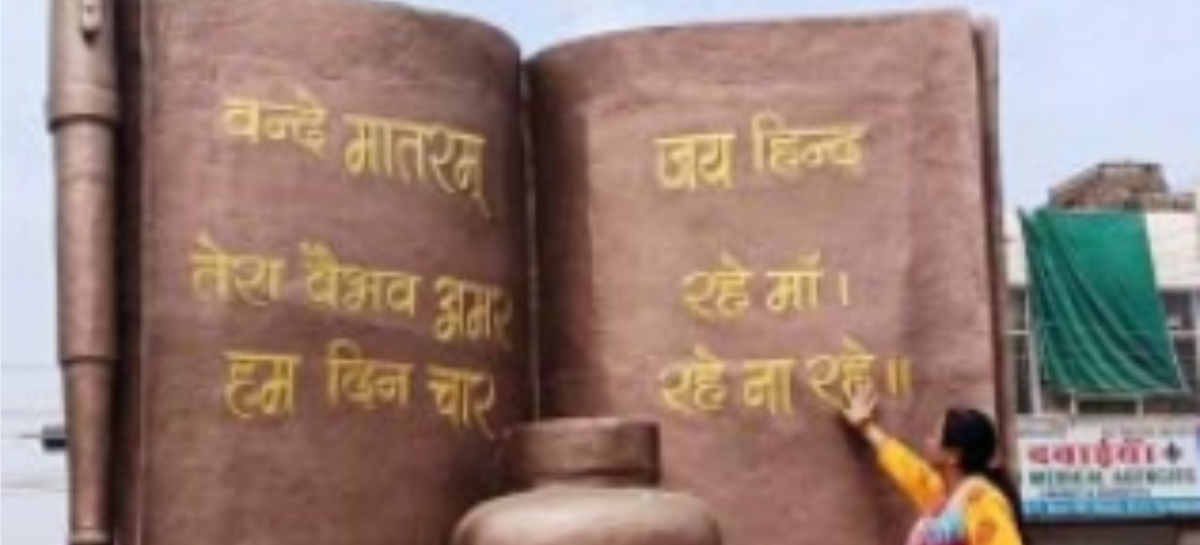 वन्दे मातरम्
तेरा वैभव अमर
हम दिन चार
जय हिन्द
रहे माँ।
रहे ना रहे॥
दवाईयाँ +
MEDICAL AGENCIES